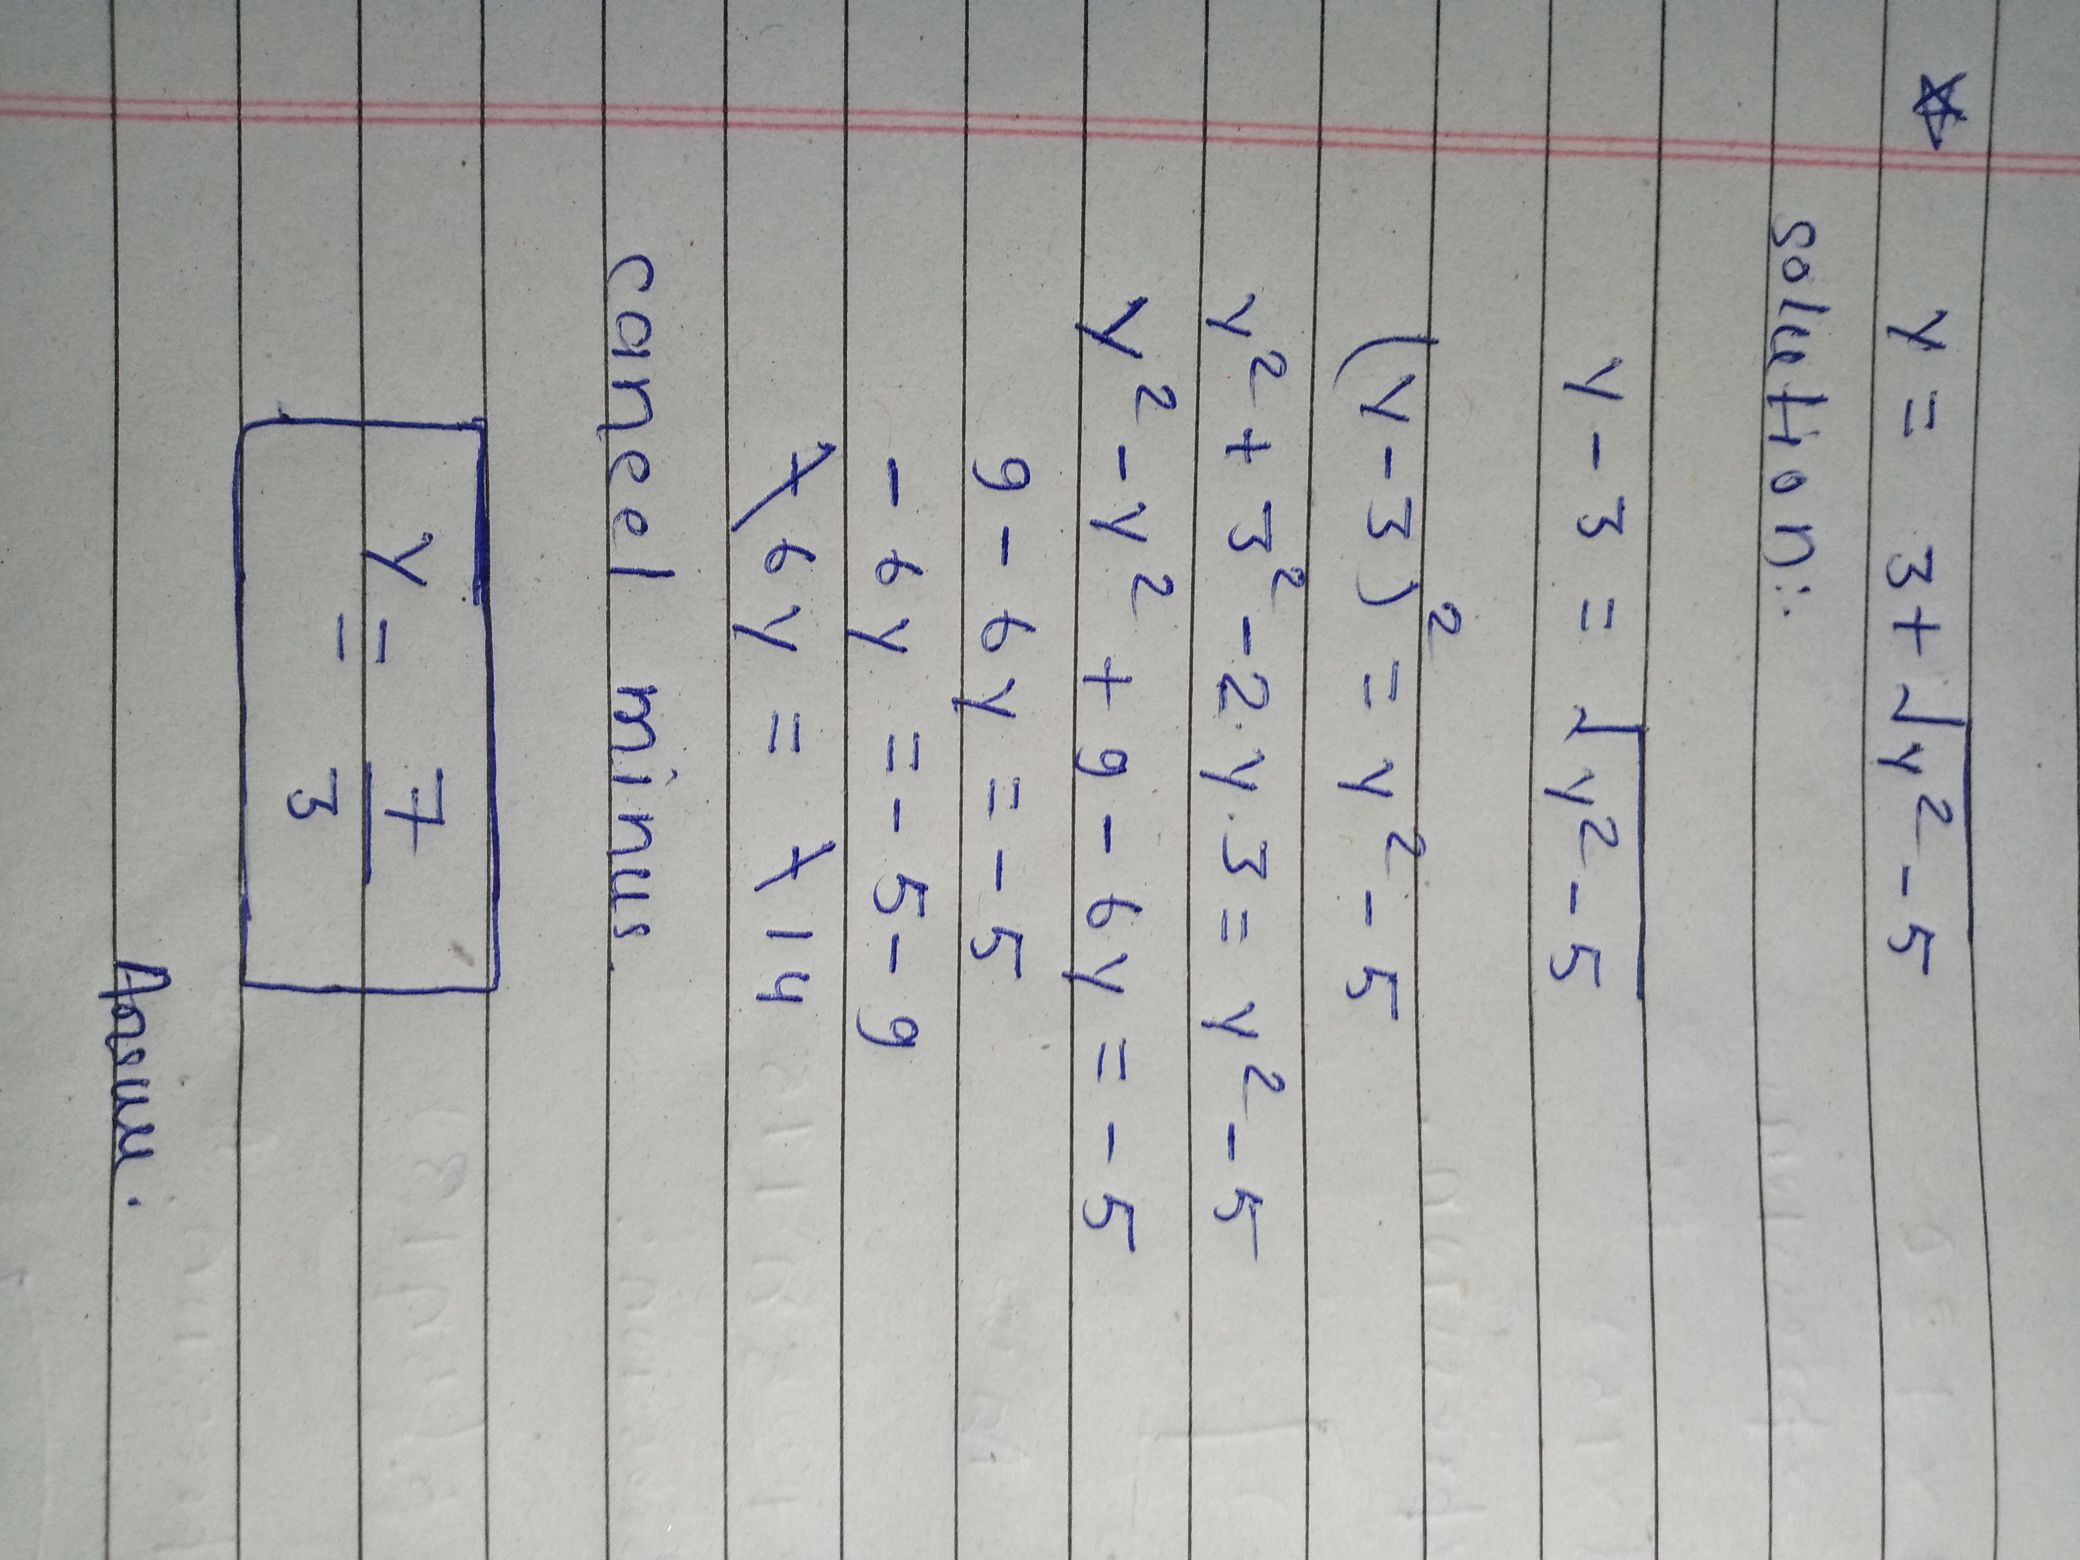 ☆ y = 3+√y²-5
solution:.
y-3 = √y²-5
(y-3)² = y²-5
y²+3²-2.y.3 = y²-5
y²-y²+9-6y = -5
9-6y = -5
-6y = -5-9
-6y = -14
cancel minus.
y = 7/3